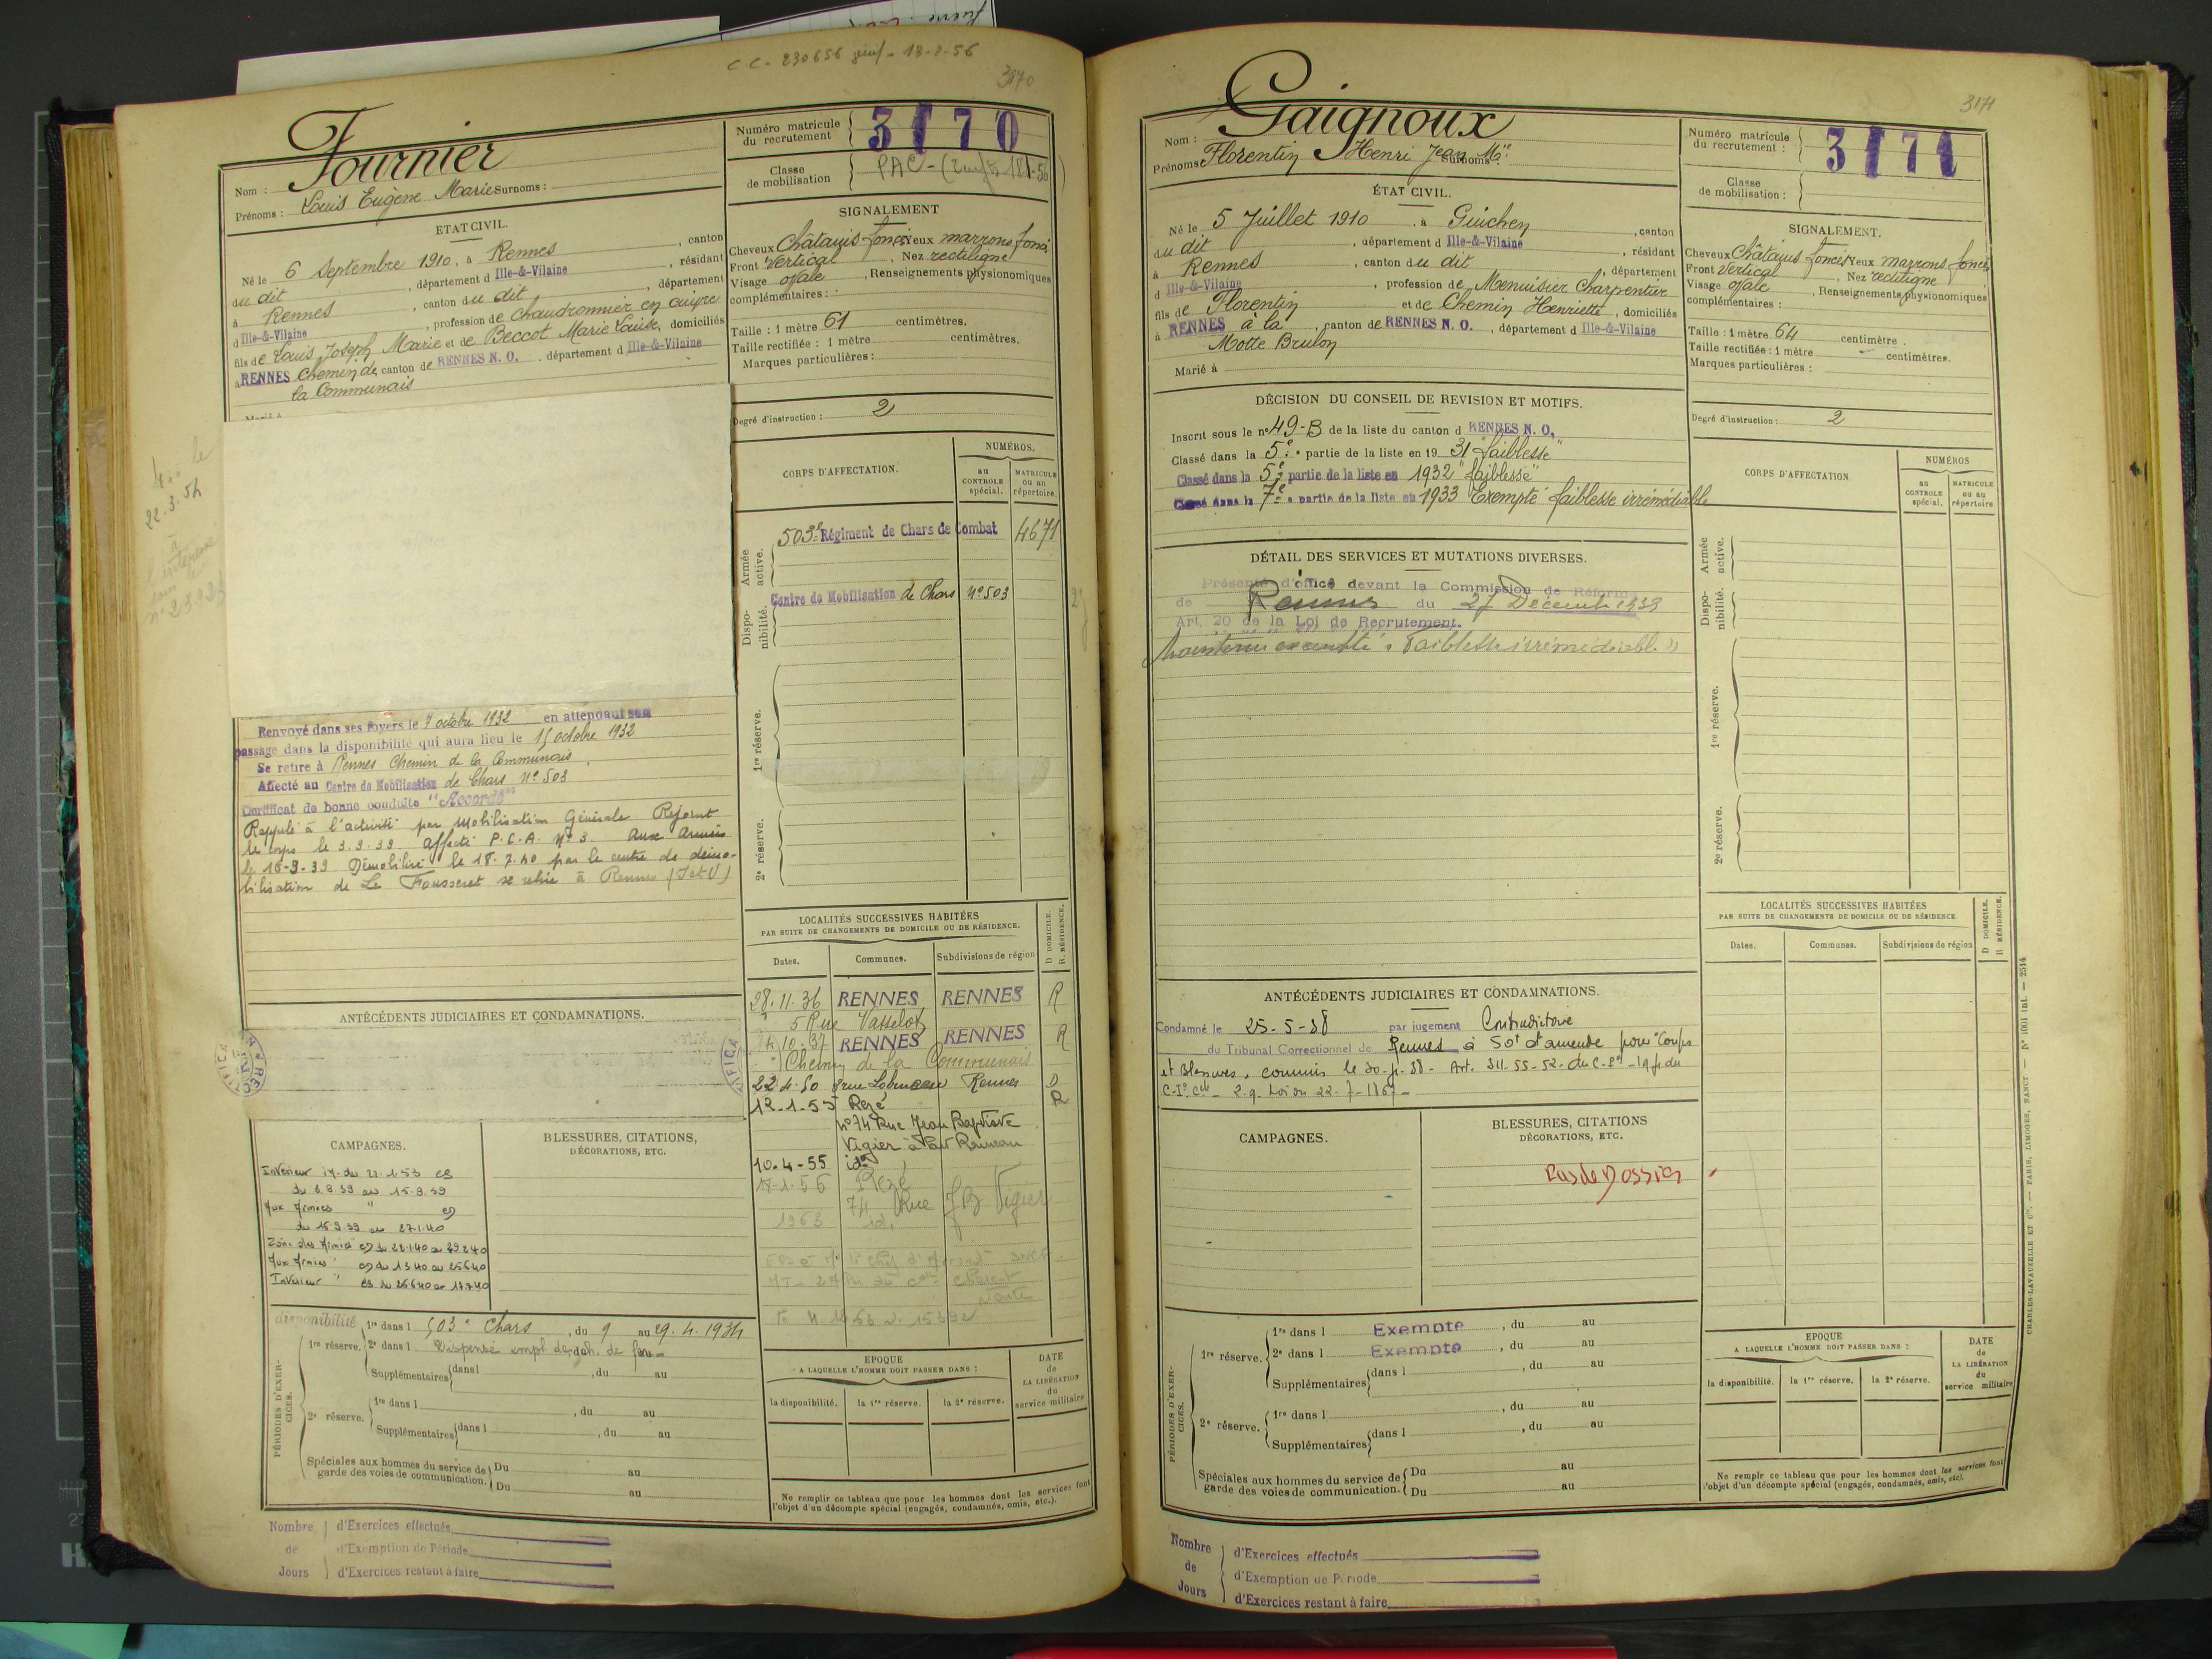 C C - 230656 - 13-2-56
3170
Nom : Fournier
Prénoms : Louis Eugène Marie Surnoms :
Numéro matricule du recrutement 3170
Classe de mobilisation PAC -
ETAT CIVIL.
Né le 6 Septembre 1910, à Rennes , canton
du dit , département d Ille-&-Vilaine , résidant
à Rennes , canton du dit , département
d Ille-&-Vilaine , profession de chaudronnier en cuivre
fils de Louis Joseph Marie et de Beccot Marie Louise, domiciliés
à RENNES chemin de canton de RENNES N. O. , département d Ille-&-Vilaine
la Communais
SIGNALEMENT
Cheveux Châtains foncés Yeux marrons foncé
Front Vertical , Nez rectiligne
Visage ovale , Renseignements physionomiques
complémentaires :
Taille : 1 mètre 61 centimètres.
Taille rectifiée : 1 mètre centimètres.
Marques particulières :
Degré d'instruction : 2
CORPS D'AFFECTATION.
NUMÉROS.
au CONTROLE spécial.
MATRICULE ou au répertoire.
Armée active.
503e Régiment de Chars de Combat 4671
Disponibilité.
Centre de Mobilisation de Chars N° 503
1re réserve.
2e réserve.
22.3.54
Renvoyé dans ses foyers le 7 octobre 1932 en attendant son
passage dans la disponibilité qui aura lieu le 15 octobre 1932
Se retire à Rennes Chemin de la Communais
Affecté au Centre de Mobilisation de Chars N° 503
Certificat de bonne conduite "Accordé"
Rappelé à l'activité par Mobilisation Générale Rejoint
le corps le 3.9.39 Affecté P.C.A. N° 3. Aux Armées
le 16-9-39 Démobilisé le 18-7-40 par le centre de démo-
bilisation de Le Fousseret se retire à Rennes (I et V)
ANTÉCÉDENTS JUDICIAIRES ET CONDAMNATIONS.
LOCALITÉS SUCCESSIVES HABITÉES
PAR SUITE DE CHANGEMENTS DE DOMICILE OU DE RÉSIDENCE.
Dates. Communes. Subdivisions de région D DOMICILE. R. RÉSIDENCE.
28.11.36 RENNES RENNES R
5 Rue Vasselot
10.37 RENNES RENNES R
Chemin de la Communais
22-4-50 8 rue Rennes D
12-1-55 Rezé R
N° 74 Rue Jean Baptiste
Vigier à
10-4-55 id°
17-1-56 Rezé
74 Rue J B Vigier
1963 id.
CAMPAGNES.
BLESSURES, CITATIONS,
DÉCORATIONS, ETC.
Intérieur
au 15.9.39
Aux Armées
du 16.9.39 au 27.1.40
Zone des Armées du 28.1.40 au 29.2.40
Aux Armées du 1.3.40 au 25.6.40
Intérieur du 26.6.40 au
PÉRIODES D'EXERCICES.
disponibilité 1re dans l 503e Chars , du 9 au 29.4.1934
1re réserve. 2e dans l Dispensé empl de ch. de fer
Supplémentaires dans l , du au
2e réserve. 1re dans l , du au
Supplémentaires dans l , du au
Spéciales aux hommes du service de garde des voies de communication. Du au
Du au
EPOQUE
A LAQUELLE L'HOMME DOIT PASSER DANS :
la disponibilité. la 1re réserve. la 2e réserve.
DATE de LA LIBÉRATION du service militaire
Ne remplir ce tableau que pour les hommes dont les services font
l'objet d'un décompte spécial (engagés, condamnés, omis, etc.).
Nombre de Jours
d'Exercices effectués
d'Exemption de Période
d'Exercices restant à faire
3171
Nom : Gaignoux
Prénoms : Florentin Henri Jean Mie Surnoms :
Numéro matricule du recrutement : 3171
Classe de mobilisation :
ÉTAT CIVIL.
Né le 5 Juillet 1910 , à Guichen , canton
du dit , département d Ille-&-Vilaine , résidant
à Rennes , canton du dit , département
d Ille-&-Vilaine , profession de Menuisier Charpentier
fils de Florentin et de Chemin Henriette , domiciliés
à RENNES à la , canton de RENNES N. O. , département d Ille-&-Vilaine
Motte Brulon
Marié à
SIGNALEMENT.
Cheveux Châtains foncés Yeux marrons foncés
Front Vertical , Nez rectiligne
Visage ovale , Renseignements physionomiques
complémentaires :
Taille : 1 mètre 64 centimètre .
Taille rectifiée : 1 mètre centimètres.
Marques particulières :
Degré d'instruction : 2
DÉCISION DU CONSEIL DE REVISION ET MOTIFS.
Inscrit sous le n° 49-B de la liste du canton d RENNES N. O.
Classé dans la 5e partie de la liste en 19 31 "faiblesse"
Classé dans la 5e partie de la liste en 1932 "faiblesse"
Classé dans la 7e partie de la liste en 1933 Exempté faiblesse irrémédiable
DÉTAIL DES SERVICES ET MUTATIONS DIVERSES.
Présenté d'office devant la Commission de Réforme
de Rennes du 27 Décembre 1939
Art. 20 de la Loi de Recrutement.
Maintenu exempté "Faiblesse irrémédiable"
CORPS D'AFFECTATION
NUMÉROS
au CONTROLE spécial.
MATRICULE ou au répertoire
Armée active.
Disponibilité.
1re réserve.
2e réserve.
ANTÉCÉDENTS JUDICIAIRES ET CONDAMNATIONS.
Condamné le 25-5-38 par jugement Contradictoire
du Tribunal Correctionnel de Rennes à 50f d'amende pour "Coups
et Blessures, commis le 30-4-38 - Art. 311-55-52- du C.P. - 194 du
C.Ion Clle - 2.9 Loi du 22-7-1867 -
LOCALITÉS SUCCESSIVES HABITÉES
PAR SUITE DE CHANGEMENTS DE DOMICILE OU DE RÉSIDENCE.
Dates. Communes. Subdivisions de région D DOMICILE. R RÉSIDENCE.
CAMPAGNES.
BLESSURES, CITATIONS
DÉCORATIONS, ETC.
Pas de Dossier
PÉRIODES D'EXERCICES.
1re réserve. 1re dans l Exempte , du au
2e dans l Exempte , du au
Supplémentaires dans l , du au
2e réserve. 1re dans l , du au
Supplémentaires dans l , du au
Spéciales aux hommes du service de garde des voies de communication. Du au
Du au
EPOQUE
A LAQUELLE L'HOMME DOIT PASSER DANS :
la disponibilité. la 1re réserve. la 2e réserve.
DATE de LA LIBÉRATION du service militaire
Ne remplir ce tableau que pour les hommes dont les services font
l'objet d'un décompte spécial (engagés, condamnés, omis, etc).
CHARLES-LAVAUZELLE ET Cie. — PARIS, LIMOGES, NANCY — N° 1001 int. — 2514
Nombre de Jours
d'Exercices effectués
d'Exemption de Période
d'Exercices restant à faire